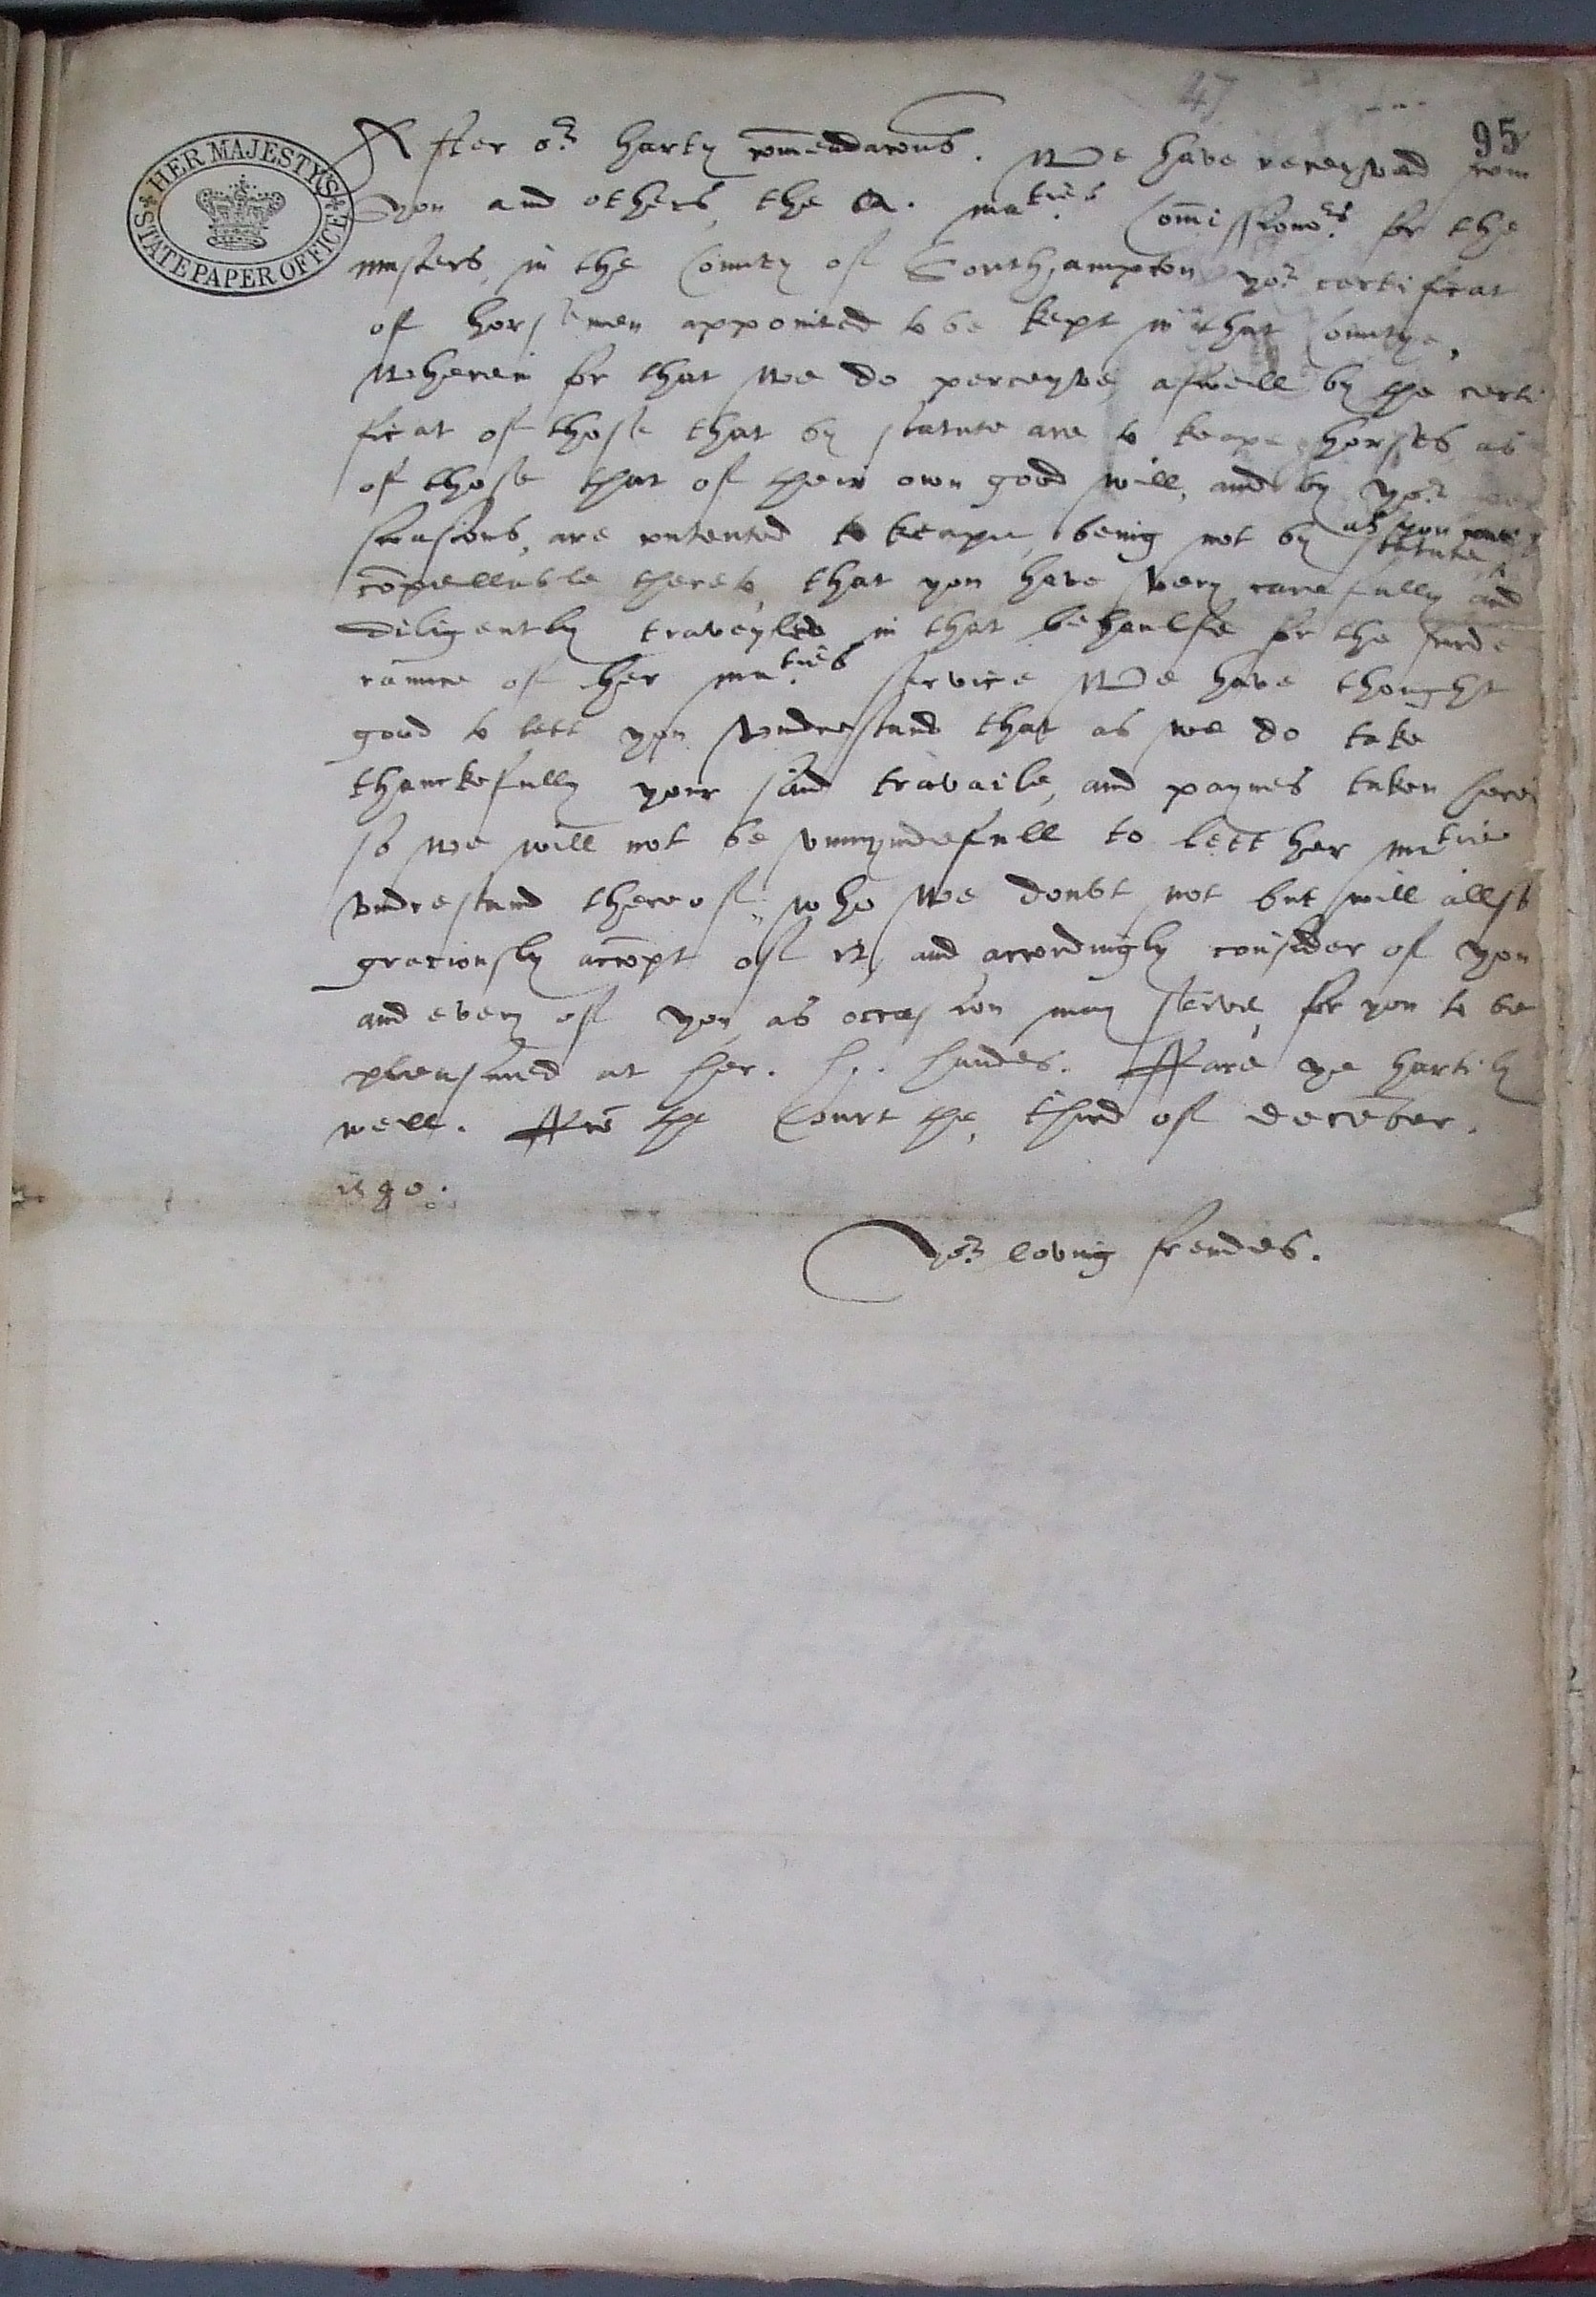 47
95
HER MAJESTY'S
STATE PAPER OFFICE
After or harty comendacons. We have receyved from
you and others, the Q. maties Comissioners for the
musters in the County of Southampton yor certificat
of horsemen appointed to be kept in that Countye,
Wherein for that we do perceyve, aswell by the certi
ficat of those that by statute are to keape horses, as
of those that of their own good will, and by yor
swasions, are contented to keape, being not by statute
as you
compellable thereto, that you have very carefully and
diligently traveyled in that behaulfe for the furde
raunce of her maties service We have thought
good to lett you understand that as we do take
thanckefully your said travaile, and paynes taken herei
so we will not be unmyndefull to lett her matie
understand thereof, who we doubt not but will allso
graciously accept of it, and accordingly consider of you
and every of you as occasion may serve, for you to be
pleasured at her. h. handes. ffare ye hartily
well. ffro the Court the, third of december.
1580.
Yor loving frendes.